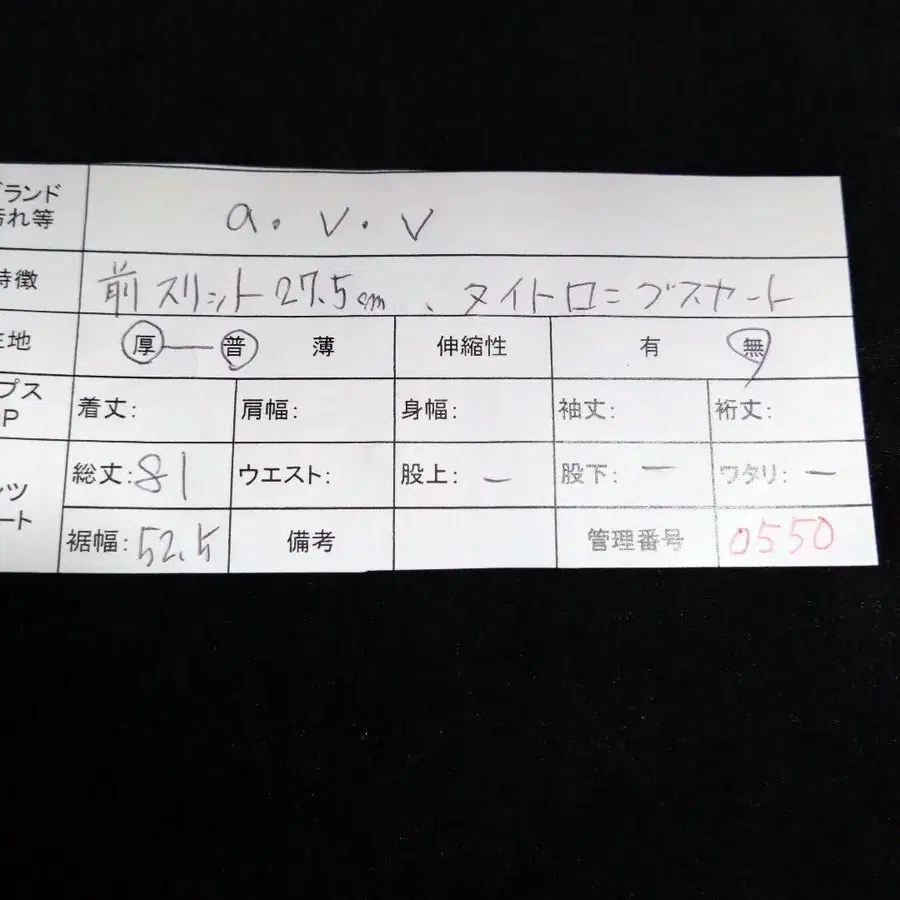 ブランド
汚れ等 a.v.v
特徴 前スリット27.5cm、タイトロングスカート
生地 厚 普 薄 伸縮性 有 無
プス
P 着丈: 肩幅: 身幅: 袖丈: 裄丈:
総丈:81 ウエスト: 股上:ー 股下:ー ワタリ:ー
ンツ
ート
裾幅:52.5 備考 管理番号 0550